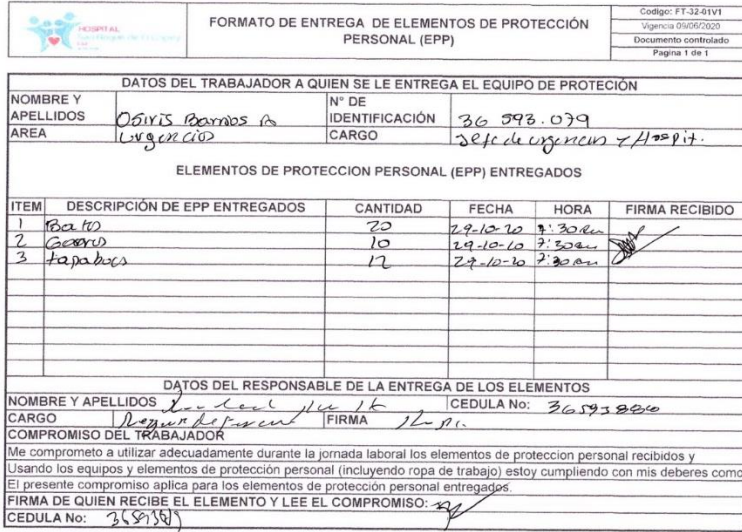 HOSPITAL
FORMATO DE ENTREGA DE ELEMENTOS DE PROTECCIÓN
PERSONAL (EPP)
Codigo: FT-32-01V1
Vigencia 09/06/2020
Documento controlado
Pagina 1 de 1
DATOS DEL TRABAJADOR A QUIEN SE LE ENTREGA EL EQUIPO DE PROTECIÓN
NOMBRE Y APELLIDOS Osiris Barrios A N° DE IDENTIFICACIÓN 36 593.079
AREA Urgencias CARGO Jefe de urgencias y Hospit.
ELEMENTOS DE PROTECCION PERSONAL (EPP) ENTREGADOS
ITEM DESCRIPCIÓN DE EPP ENTREGADOS CANTIDAD FECHA HORA FIRMA RECIBIDO
1 Batas 20 29-10-20 7:30 am
2 Gorros 10 29-10-20 7:30 am
3 tapabocas 12 29-10-20 7:30 am
DATOS DEL RESPONSABLE DE LA ENTREGA DE LOS ELEMENTOS
NOMBRE Y APELLIDOS CEDULA No:
CARGO FIRMA
COMPROMISO DEL TRABAJADOR
Me comprometo a utilizar adecuadamente durante la jornada laboral los elementos de proteccion personal recibidos y
Usando los equipos y elementos de protección personal (incluyendo ropa de trabajo) estoy cumpliendo con mis deberes como
El presente compromiso aplica para los elementos de protección personal entregados.
FIRMA DE QUIEN RECIBE EL ELEMENTO Y LEE EL COMPROMISO:
CEDULA No: